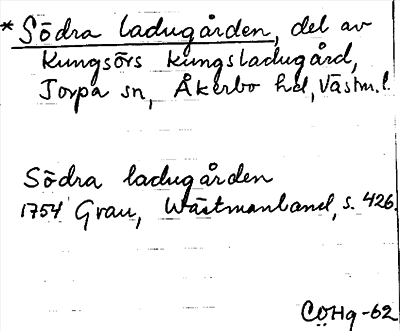 * Södra ladugården, del av
Kungsörs kungsladugård,
Torpa sn, Åkerbo hd, Västm.l.
Södra ladugården
1754 Grau, Wästmanland, s. 426.
CÖHg-62